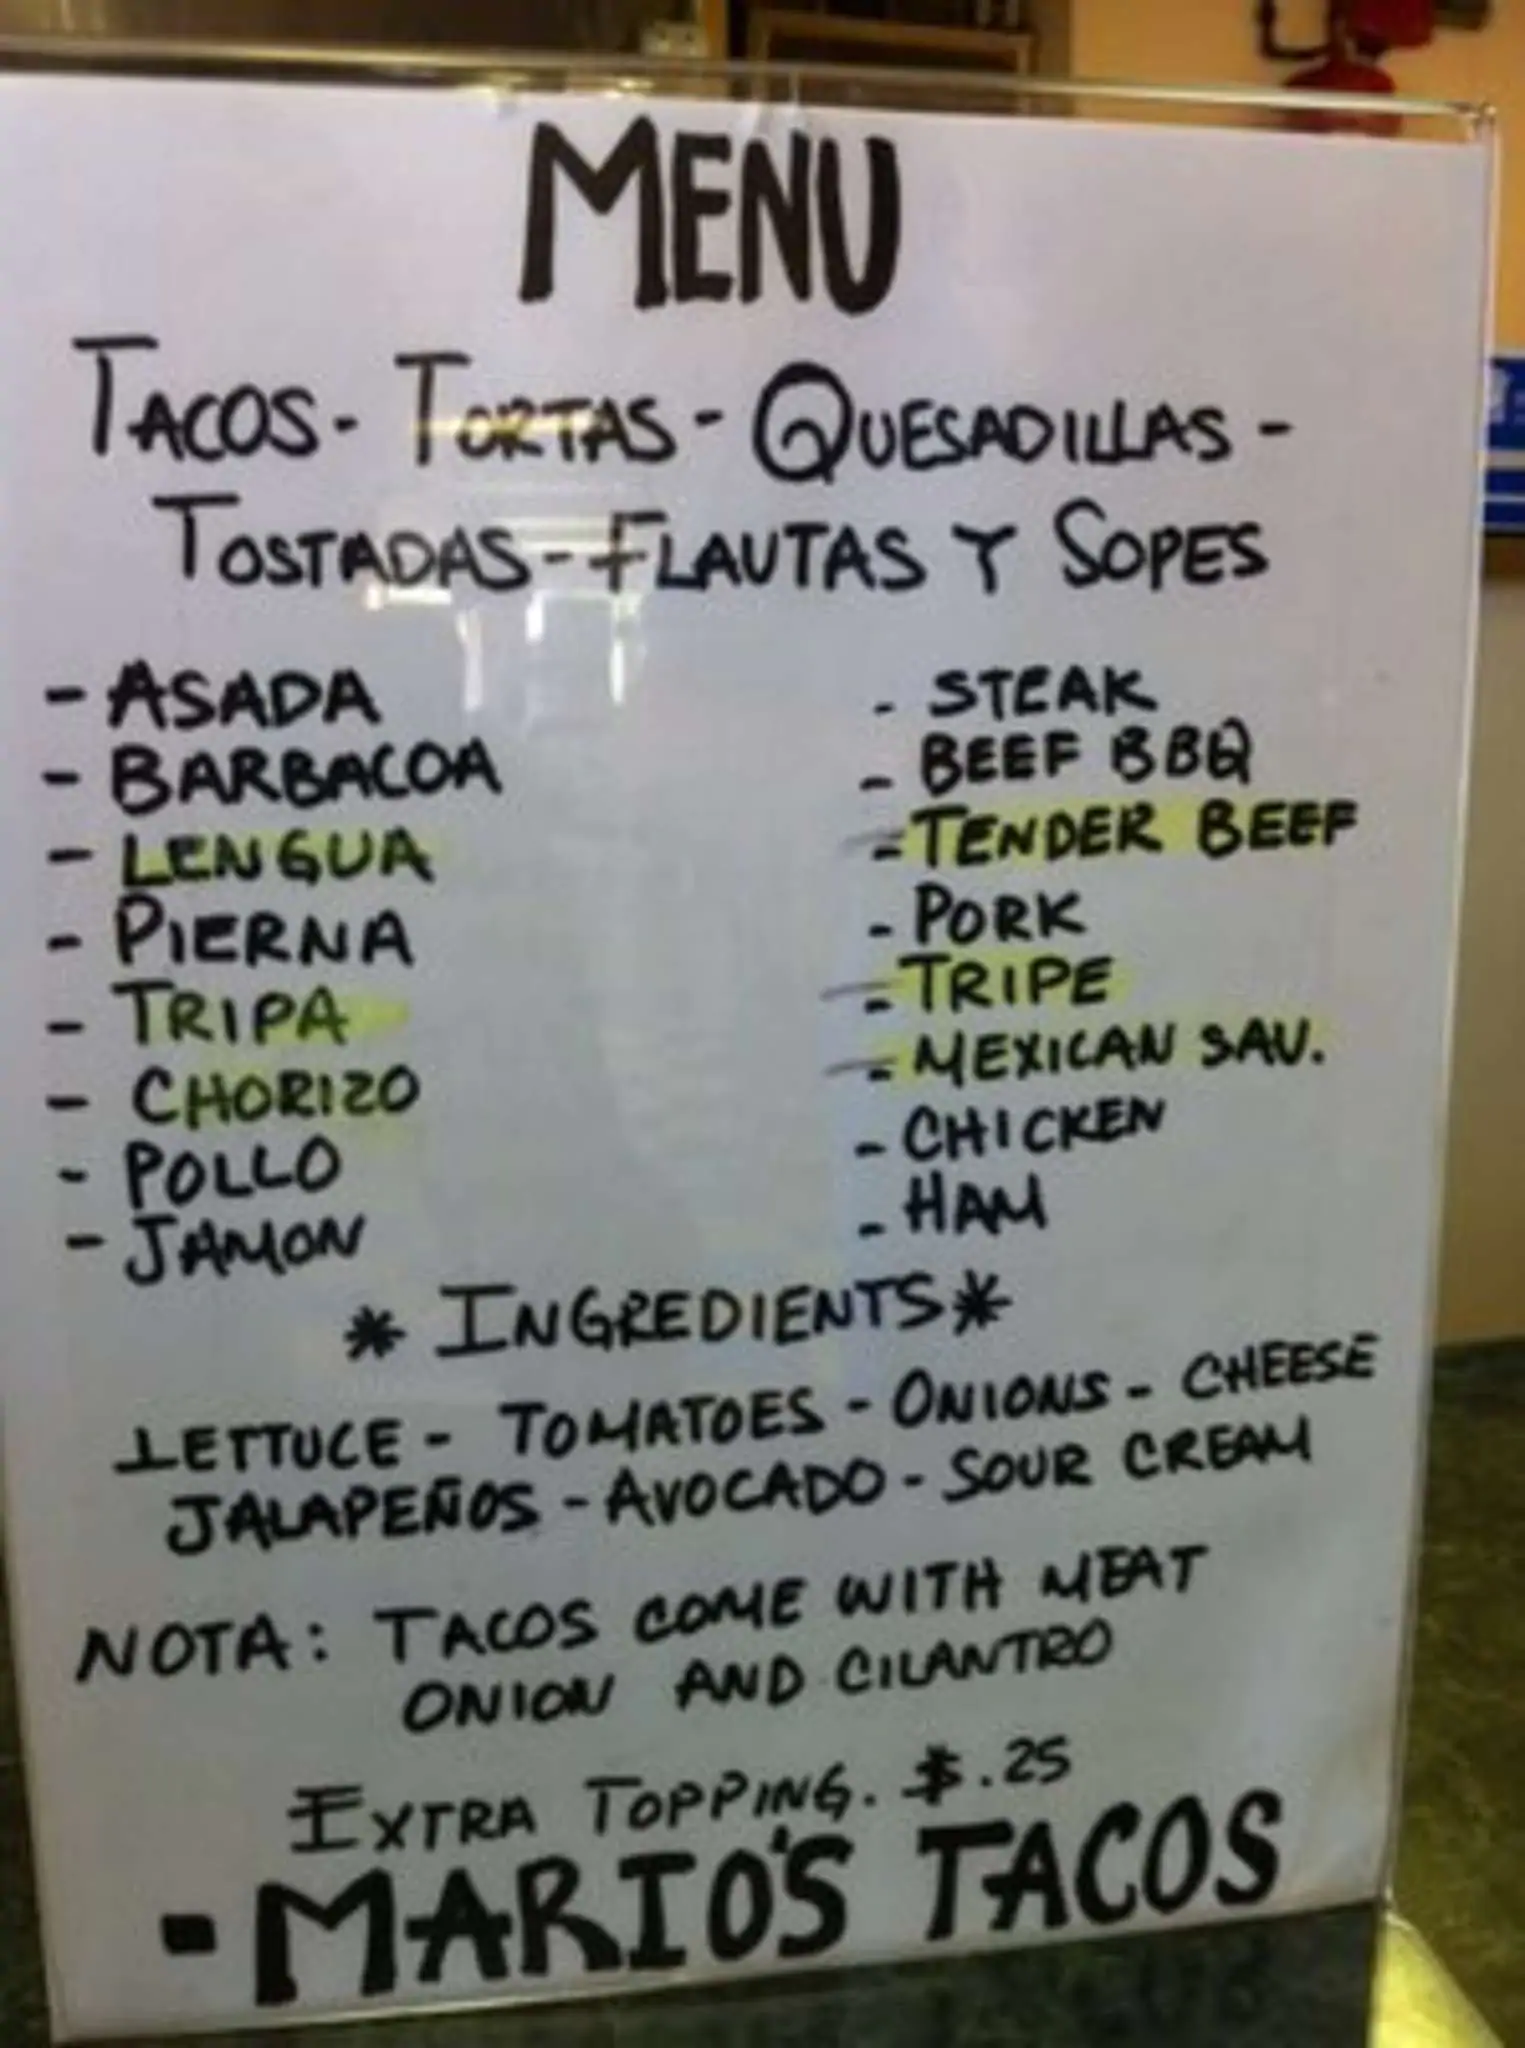 MENU
TACOS - TORTAS - QUESADILLAS -
TOSTADAS - FLAUTAS Y SOPES
- ASADA - STEAK
- BARBACOA - BEEF BBQ
- LENGUA - TENDER BEEF
- PIERNA - PORK
- TRIPA - TRIPE
- CHORIZO - MEXICAN SAU.
- POLLO - CHICKEN
- JAMON - HAM
* INGREDIENTS *
LETTUCE - TOMATOES - ONIONS - CHEESE
JALAPEÑOS - AVOCADO - SOUR CREAM
NOTA: TACOS COME WITH MEAT
ONION AND CILANTRO
EXTRA TOPPING. $.25
- MARIO'S TACOS